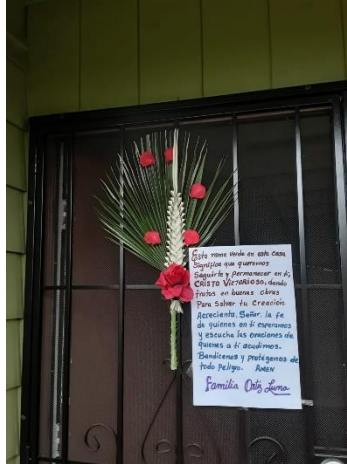 Este ramo verde en esta casa
Significa que queremos
Seguirte y permanecer en ti,
CRISTO VICTORIOSO, dando
frutos en buenas obras
Para Salvar tu Creación.
Acrecienta, Señor, la fe
de quienes en ti esperamos
y escucha las oraciones de
quienes a ti acudimos.
Bendícenos y protégenos de
todo Peligro. AMEN
Familia Ortiz Luna